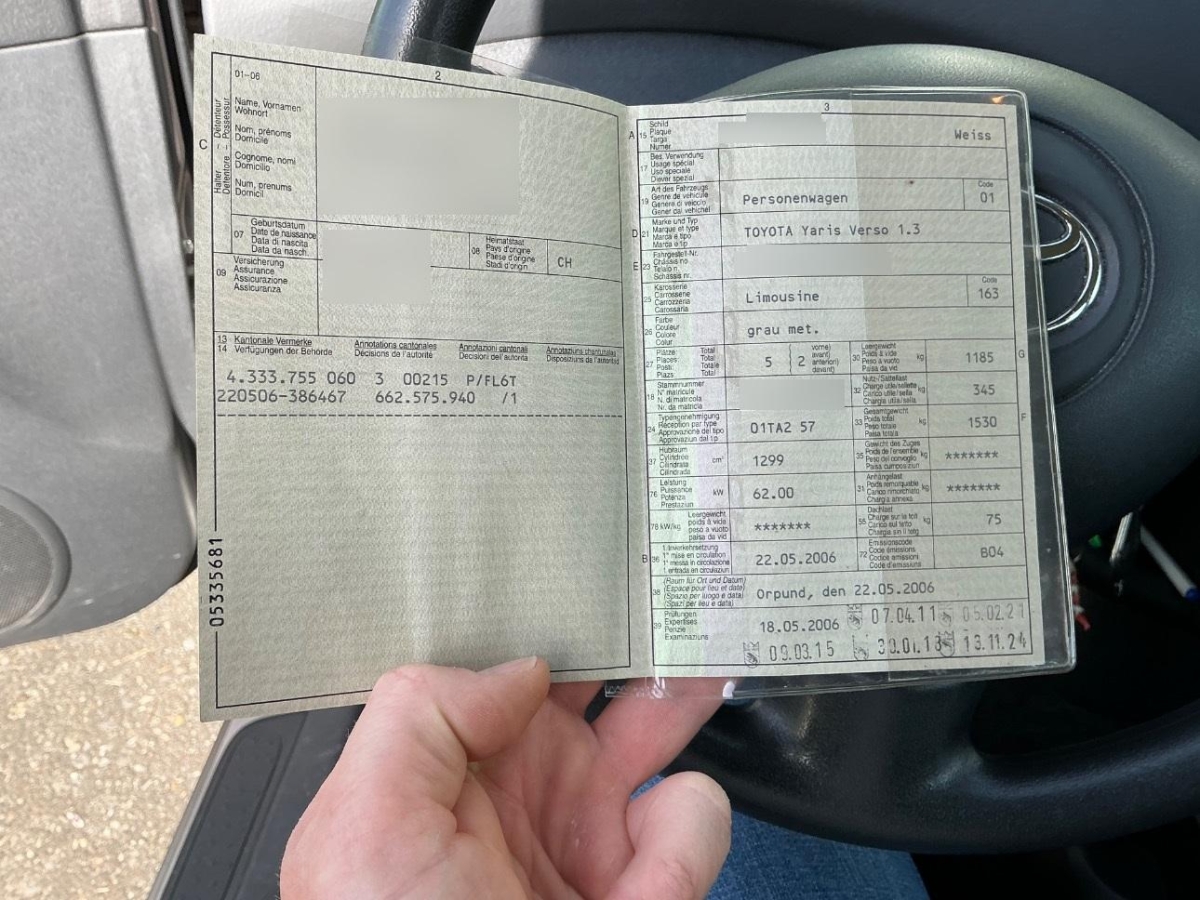 2
01-06
C
Halter – Détenteur
Detentore – Possessur
Name, Vornamen
Wohnort
Nom, prénoms
Domicile
Cognome, nomi
Domicilio
Num, prenums
Domicil
07
Geburtsdatum
Date de naissance
Data di nascita
Data da nasch.
08
Heimatstaat
Pays d'origine
Paese d'origine
Stadi d'origin
CH
09
Versicherung
Assurance
Assicurazione
Assicuranza
13 Kantonale Vermerke Annotations cantonales Annotazioni cantonali Annotaziuns chantunalas
14 Verfügungen der Behörde Décisions de l'autorité Decisioni dell'autorità Disposiziuns da l'autoritad
4.333.755 060 3 00215 P/FL6T
220506-386467 662.575.940 /1
05335681
3
A 15
Schild
Plaque
Targa
Numer
Weiss
17
Bes. Verwendung
Usage spécial
Uso speciale
Diever spezial
19
Art des Fahrzeugs
Genre de véhicule
Genere di veicolo
Gener dal vehichel
Personenwagen
Code
01
D 21
Marke und Typ
Marque et type
Marca e tipo
Marca e tip
TOYOTA Yaris Verso 1.3
E 23
Fahrgestell-Nr.
Châssis no
Telaio n.
Schassis nr.
25
Karosserie
Carrosserie
Carrozzeria
Carossaria
Limousine
Code
163
26
Farbe
Couleur
Colore
Colur
grau met.
27
Plätze: Total
Places: Total
Posti: Totale
Plazs: Total
5
2
vorne)
avant)
anteriori)
davant)
30
Leergewicht
Poids à vide
Peso a vuoto
Paisa da vid
kg
1185
G
18
Stammnummer
N° matricule
N. di matricola
Nr. da matricla
32
Nutz-/Sattellast
Charge utile/sellette
Carico utile/sella
Chargia utila/sella
kg
345
24
Typengenehmigung
Réception par type
Approvazione del tipo
Approvaziun dal tip
01TA2 57
33
Gesamtgewicht
Poids total
Peso totale
Paisa totala
kg
1530
F
37
Hubraum
Cylindrée
Cilindrata
Cilindrada
cm³
1299
35
Gewicht des Zuges
Poids de l'ensemble
Peso del convoglio
Paisa cumposiziun
kg
*******
76
Leistung
Puissance
Potenza
Prestaziun
kW
62.00
31
Anhängelast
Poids remorquable
Carico rimorchiato
Chargia annexa
kg
*******
78 kW/kg
Leergewicht
poids à vide
peso a vuoto
paisa da vid
*******
55
Dachlast
Charge sur le toit
Carico sul tetto
Chargia sin il tetg
kg
75
B 36
1. Inverkehrsetzung
1re mise en circulation
1a messa in circolazione
1. entrada en circulaziun
22.05.2006
72
Emissionscode
Code émissions
Codice emissioni
Code d'emissiuns
B04
38
(Raum für Ort und Datum)
(Espace pour lieu et date)
(Spazio per luogo e data)
(Spazi per lieu e data)
Orpund, den 22.05.2006
39
Prüfungen
Expertises
Perizie
Examinaziuns
18.05.2006 07.04.11 05.02.21
09.03.15 30.01.18 13.11.24